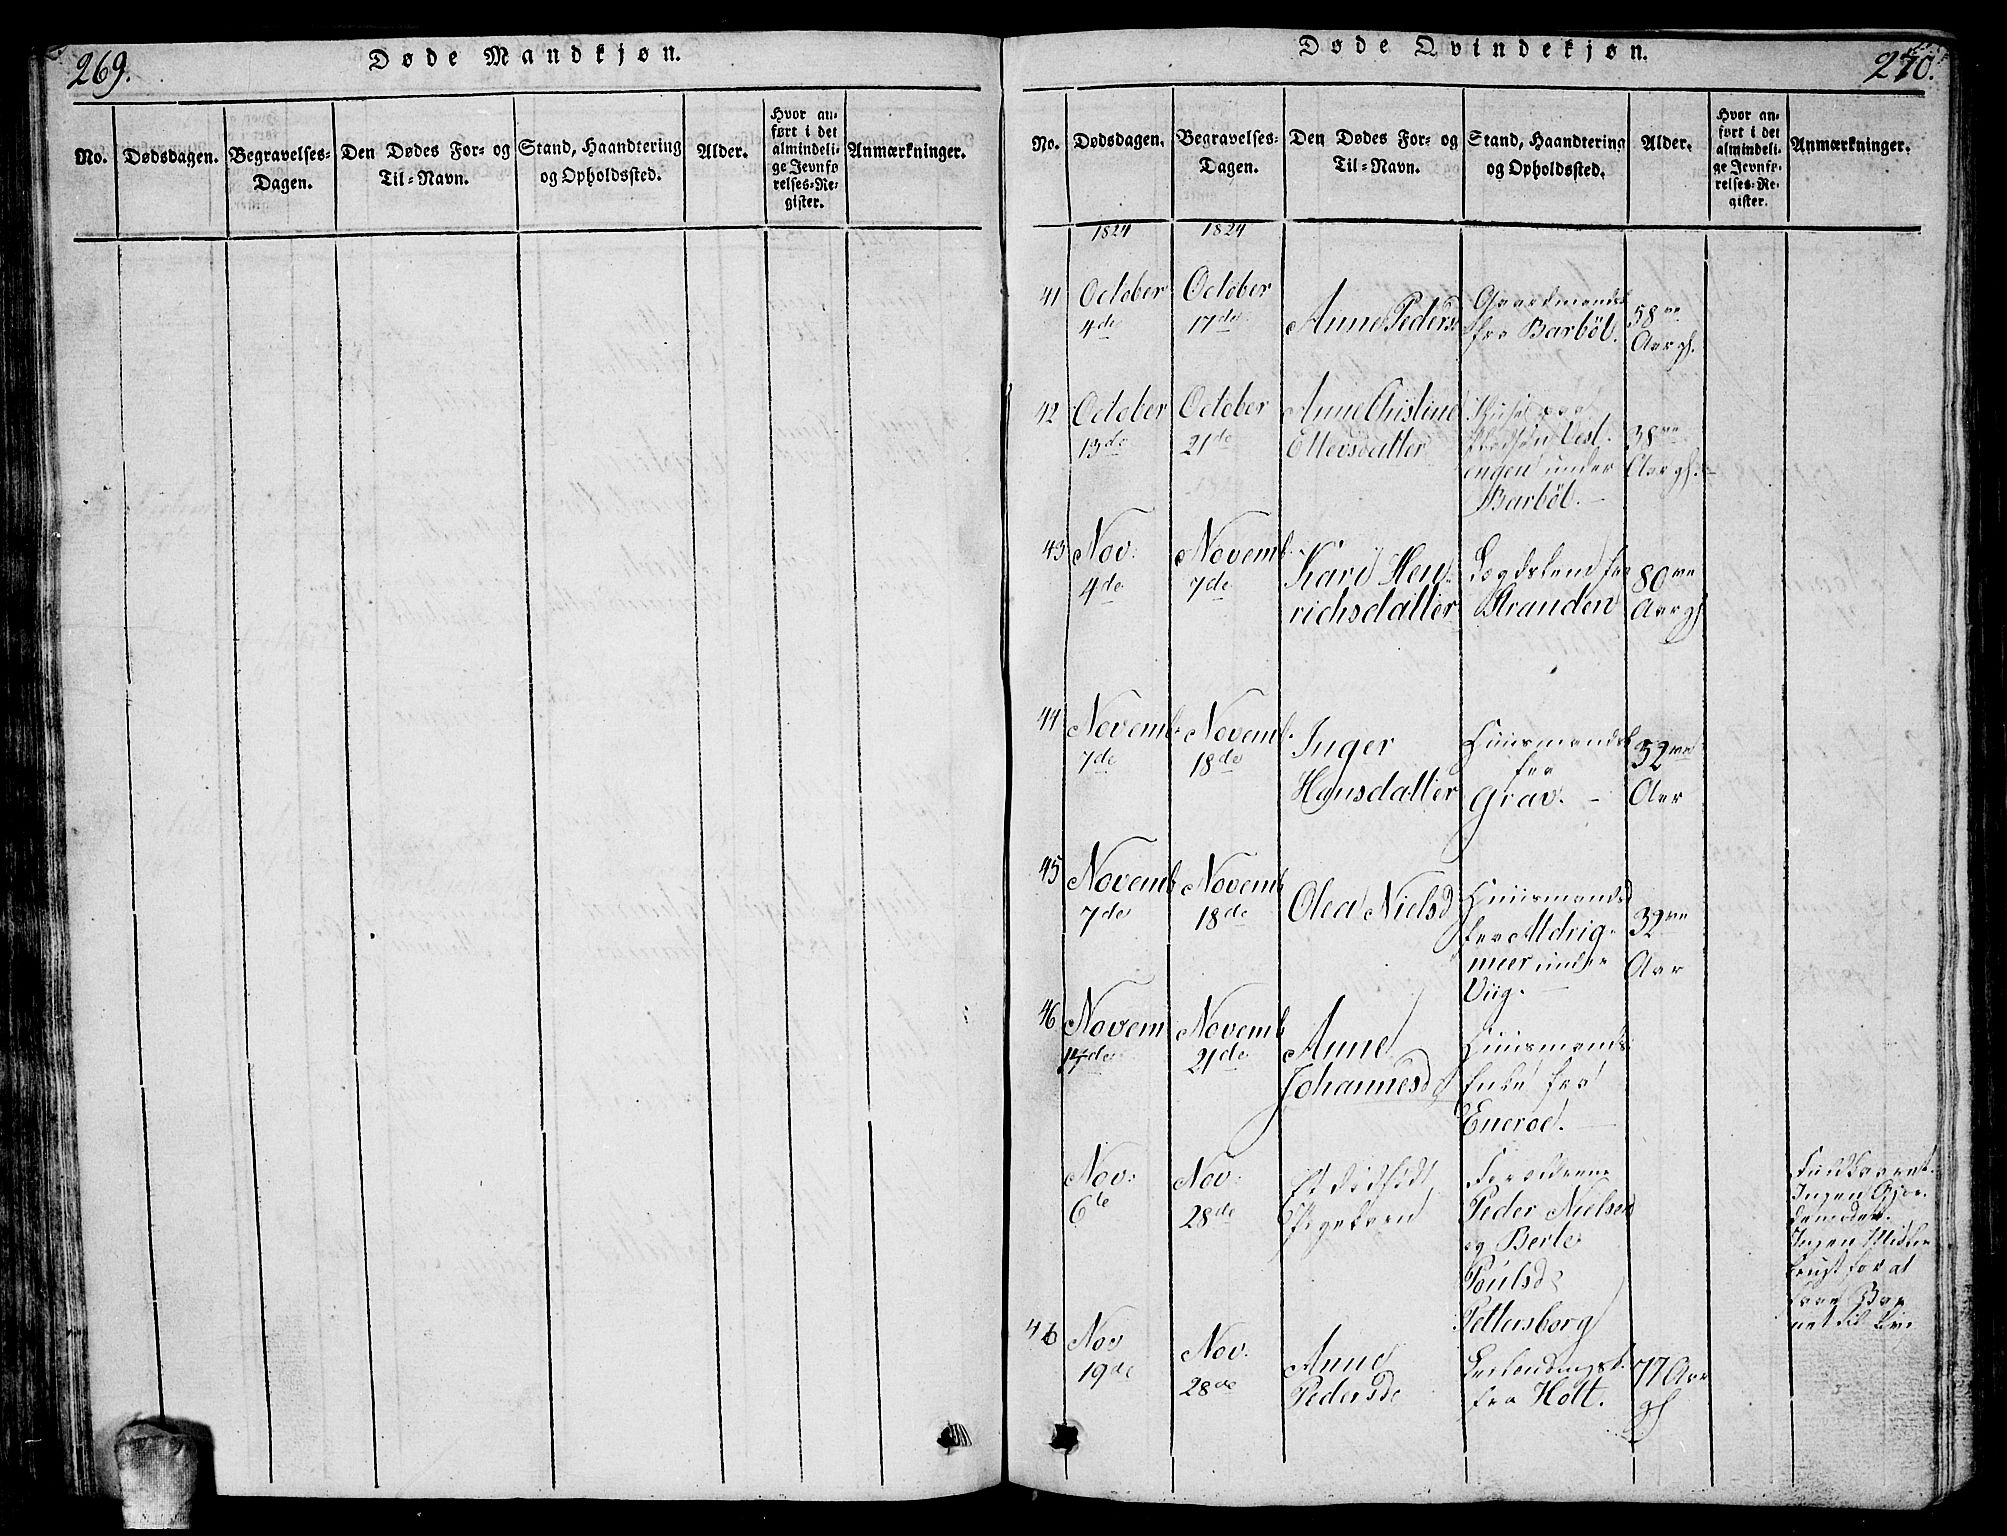 269.
Døde Mandkjøn.
No.
Dødsdagen.
Begravelses-
Dagen.
Den Dødes For- og
Til-Navn.
Stand, Haandtering
og Opholdssted.
Alder.
Hvor an-
ført i det
almindeli-
ge Jevnfø
relses-Re-
gister.
Anmærkninger.
Døde Qvindekjøn.
270.
No.
Dødsdagen.
Begravelses-
Dagen.
Den Dødes For- og
Til-Navn.
Stand, Haandtering
og Opholdssted.
Alder.
Hvor an-
ført i det
almindeli
ge Jevnfø-
relses-Re-
gister.
Anmærkninger.
1824
1824
41
October
4de
October
17de
Anne Pedersd
Gaardmands
fra Barböl.
58
Aar
42
October
13de
October
21de
Anne Christine
Ellevsdatter
Vest-
engen under
Barböl.
38
Aar
43
Nov:
4de
Novemb.
7de
Kari Hen-
richsdatter
Lægdslem fra
Stranden
80
Aar
44
Novemb.
7de
Novemb.
18de
Inger
Hansdatter
Huusmandsk
fra
Grav.
52
Aar
45
Novemb
7de
Novemb
18de
Olea Nielsd
Huusmands
under
Viig.
32
Aar
46
Novem
14de
Novemb
21de
Anne
Johannesd
Huusmands
Enke fra
Eneroe.
Nov:
6te
Nov:
28de
Et dödfödt
Pigebarn
Forældrene
Peder Nielsen
og Berte
Poulsd
Pettersborg
Fuldbaaret.
Ingen Gjor-
demoder.
Ingen Midler
brugt for at
faae Bar
net til Liv
46
Nov
19de
Nov.
28de
Anne
Pedersd
fra Holt.
77 Aar